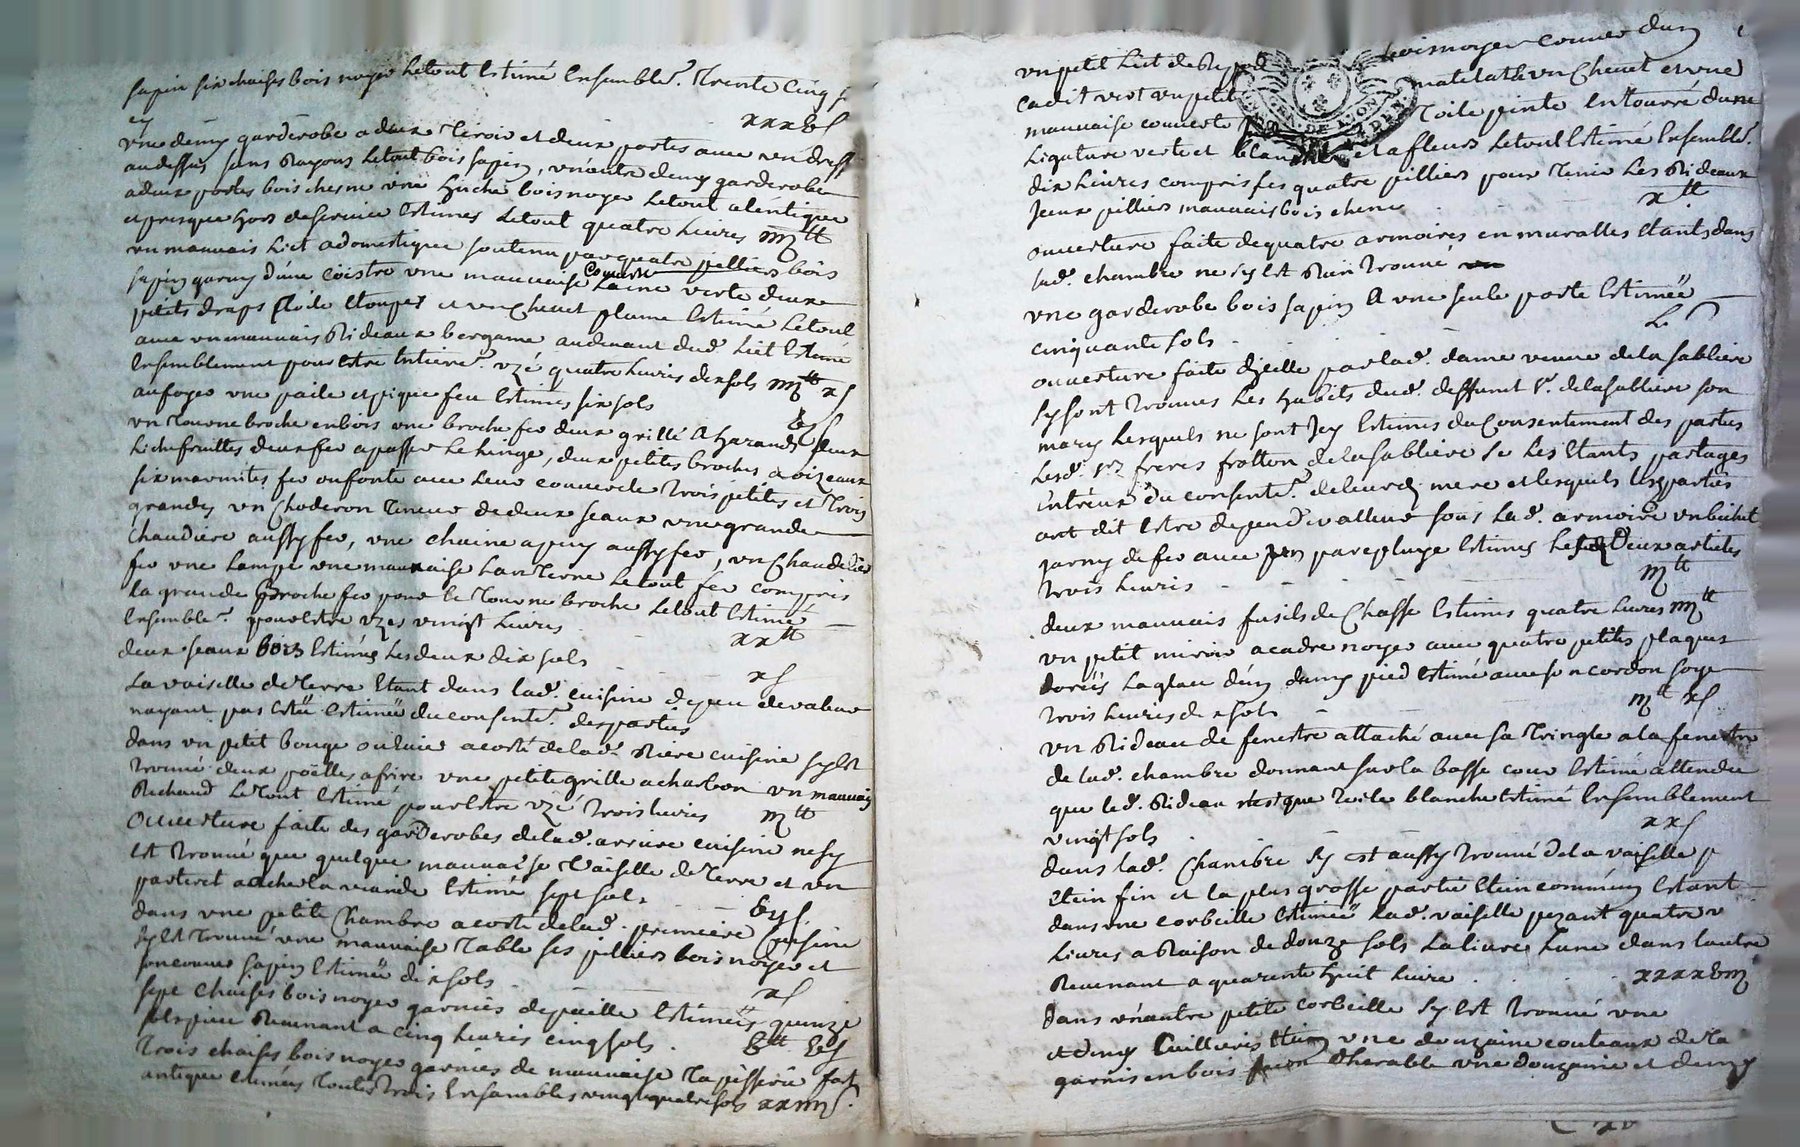 sapin six chaises bois noyer letout Estimé Ensemblet. Trente Cinq s
xxxv s
une demy garderobe a deux Tiroir et deux portes avec un dress
audessus sans Rayons letout bois sapin, un autre demy garderobe
a deux portes bois chesne une huche bois noyer letout alentique
et presque hors deservice Estimés letout quatre livres iiij tt
un mauvais lict adomestique soutenu par quatre pilliers bois
sapin garny d'une coistre une mauvaise couverte Laine verte deux
petits draps Toile Etoupes et un Chevet plume Estimé Letout
avec un mauvais Rideaux bergame audevant dud. lict Estimé
Ensemblement pour Estre Entieremt. uzé quatre livres dix sols iiij tt x s
au foyer une paile et pique feu Estimés six sols
vj s
un Tourne broche en bois une broche fer deux grille a hazands deux
Lichefrittes deux fer a passer le linge, deux petites broches a oizeaux
six marmites fer ou fonte avec leur couvercle Trois petites et Trois
grandes un Choderon Teneur de deux seaux une grande
Chaudiere aussy fer, une chaine a puy aussy fer, un Chaudelier
fer une Lampe une mauvaise Lanterne letout fer compris
la grande Broche fer pour le Tourne broche Letout Estimé
Ensemblet. pour Estre uzés vingt livres
xx tt
deux seaux bois Estimés les deux dix sols
x s
La vaiselle de Terre Etant dans lad. cuisine de peu devaleur
nayant pas Esté Estimée du consentet. des parties
dans un petit bouge ou Evier acosté de lad. Riere cuisine syest
trouvé deux poëlles afrire une petite grille acharbon un mauvais
Rechaud Letout Estimé pour Estre uzé Trois livres iij tt
ouverture faite des garderobes de lad. arriere cuisine nesy
est trouvé que quelque mauvaise Vaiselle de Terre et un
parteret a acher la viande Estimé sept sols
vij s
dans une petite Chambre acosté de lad. premiere Cuisine
syest trouvé une mauvaise Table ses pilliers bois noyer et
son couver sapin Estimée dix sols
x s
sept chaises bois noyer garnies de paille Estimées quinze
sols piece Revenant a cinq livres cinq sols. v tt v s
Trois chaises bois noyer garnies de mauvaise Tapisserie fast
antique Estimées Toutes trois Ensembles vingt quatre sols xxiiij s.
un petit Lict de Repos bois noyer couver d'un
cadit vert un petit matelat un Chevet et une
mauvaise couverte Toile peinte Entourré dune
Ligature verte et blanche et a fleurs Letout Estimé Ensemblet.
dix livres compris ses quatre pilliers pour Tenir les Rideaux
Jceux pilliers mauvais bois chene
x tt
ouverture faite de quatre armoires en muralles Etants dans
lad. chambre ne sy est Rien trouvé
une garderobe bois sapin a une seule porte Estimée
cinquante sols
L s
ouverture faite dicelle par lad. dame veuve de la sabliere
sy sont trouvés Les habits dud. deffunt Sr. de lasabliere son
mary Lesquels ne sont Jcy Estimés du Consentement des parties
Lesd. Srs freres frotton de lasabliere se les Etants partagés
Entreux du consentet. de leurd. mere et lesquels lesparties
ont dit Estre de peu de valleur sous lad. armoire un buhet
garny de fer avec un parepluye Estimés les deux articles
Trois livres
iij tt
deux mauvais fusils de Chasse Estimés quatre livres iiij tt
un petit miroir acadre noyer avec quatre petits plaques
dorées La glace d'un demy pied Estimé avec son cordon soye
trois livres dix sols
iij tt x s.
un Rideau de fenestre attaché avec sa Tringle a la fenestre
de lad. chambre donnant sur la basse cour Estimé attendu
que led. Rideau nest que Toile blanche Estimé Ensemblement
vingt sols
xx s
dans lad. Chambre sy est aussy trouvé de la vaiselle p
Etein fin et la plus grosse partie Etein commun Estant
dans une corbeille Estimée lad. vaiselle pezant quatre v
Livres a Raison de douze sols La livre Lune dans lautre
Revenant a quarente huit livre
xxxxviij
dans un autre petite corbeille sy est trouvé une
et demy Cuillieres Etein une douzaine couteaux de Ta
garnis en bois facon dherable une douzaine et demy
GEN. DE LYON